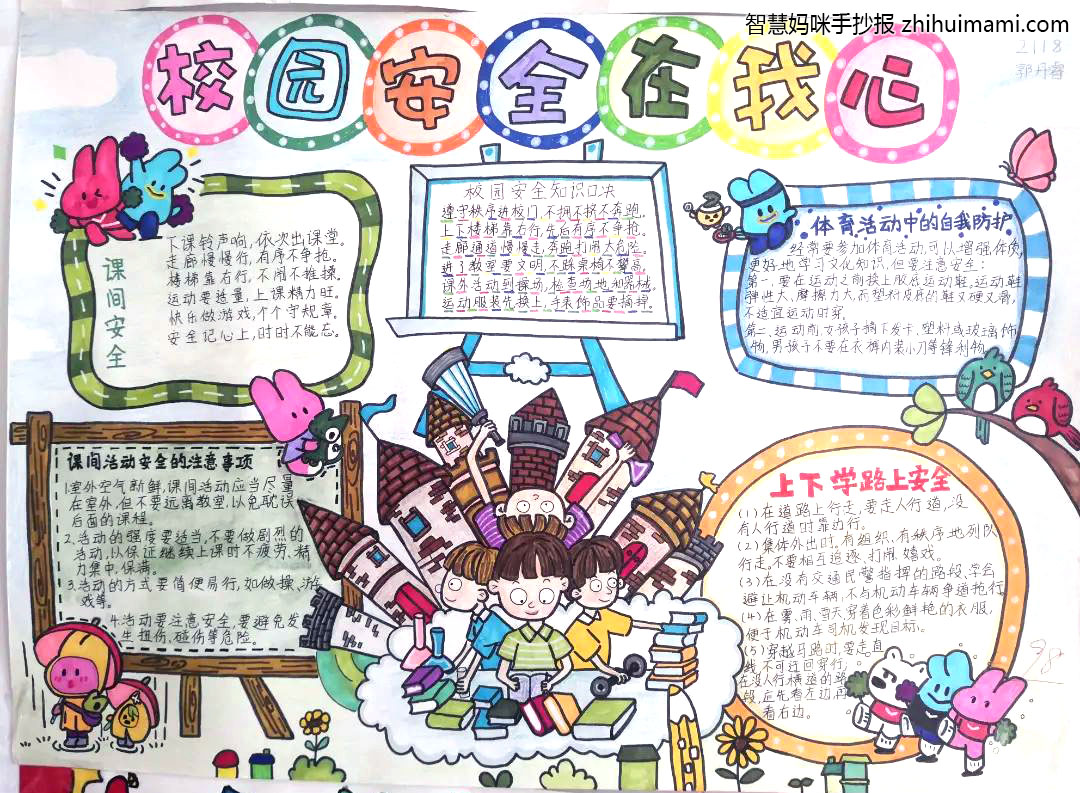 智慧妈咪手抄报 zhihuimami.com
2118
郭丹睿
校园安全在我心
课间安全
下课铃声响，依次出课堂。
走廊慢慢行，有序不争抢。
楼梯靠右行，不闹不推搡。
运动要适量，上课精力旺。
快乐做游戏，个个守规章。
安全记心上，时时不能忘。
校园安全知识口决
遵守秩序进校门，不拥不挤不奔跑。
上下楼梯靠右行，先后有序不争抢。
走廊通道慢慢走，奔跑打闹大危险。
进了教室要文明，不踩桌椅不攀高。
课外活动到操场，检查场地和器械。
运动服装先换上，手表饰品要摘掉。
体育活动中的自我防护
经常要参加体育活动，可以增强体质，
更好地学习文化知识，但要注意安全：
第一，要在运动之前换上胶底运动鞋，运动鞋
弹性大、摩擦力大，而塑料皮质的鞋又硬又滑，
不适宜运动时穿。
第二、运动前，女孩子摘下发卡、塑料或玻璃饰
物，男孩子不要在衣裤内装小刀等锋利物。
课间活动安全的注意事项
1.室外空气新鲜，课间活动应当尽量
在室外，但不要远离教室，以免耽误
后面的课程。
2.活动的强度要适当，不要做剧烈的
活动，以保证继续上课时不疲劳、精
力集中、保满。
3.活动的方式要简便易行，如做操、游
戏等。
4.活动要注意安全，要避免发
生扭伤、碰伤等危险。
上下学路上安全
(1)在道路上行走，要走人行道，没
有人行道时靠边行。
(2)集体外出时，有组织、有秩序地列队
行走，不要相互追逐、打闹、嬉戏。
(3)在没有交通民警指挥的路段，学会
避让机动车辆，不与机动车辆争道抢行
(4)在雾、雨、雪天穿着色彩鲜艳的衣服，
便于机动车司机发现目标。
(5)穿越马路时，要走直
线，不可迂回穿行；
在没人行横道的路
段，应先看左边，再
看右边。
98